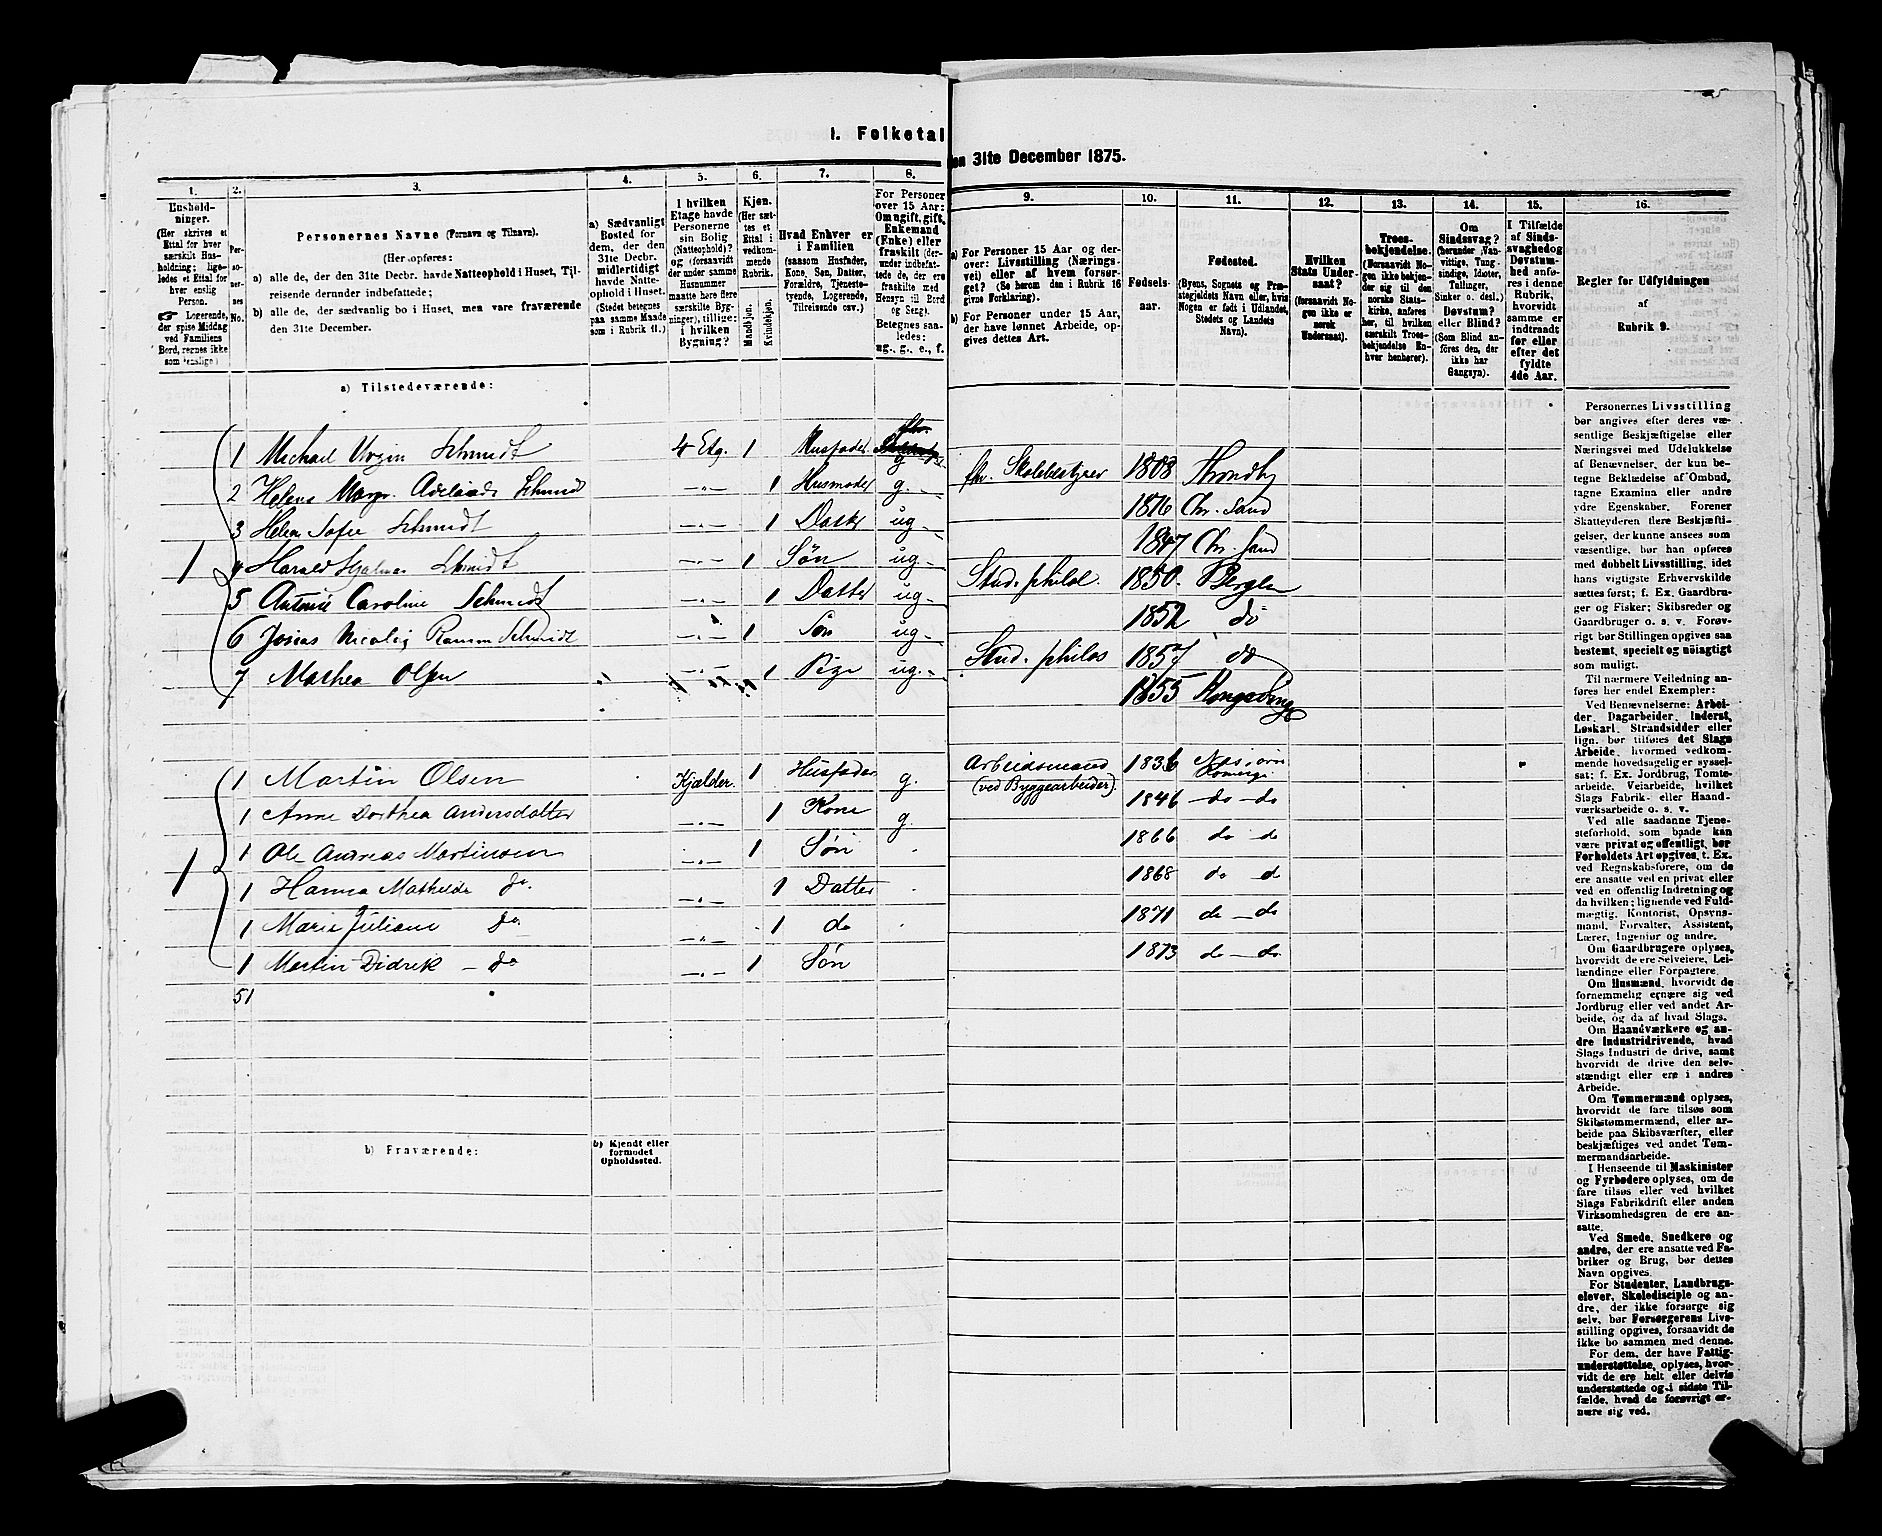 I. Folketal
en 31te December 1875.
1. 2. 3. 4. 5. 6. 7. 8. 9. 10. 11. 12. 13. 14. 15. 16.
Hushold-
ninger.
(Her skrives et
Ettal for hver
særskilt Hus-
holdning; lige-
ledes et Ettal for
hver enslig
Person.
☞ Logerende,
der spise Middag
ved Familiens
Bord, regnes ikke
som enslige.)
Per-
so-
ner-
nes
No.
Personernes Navne (Fornavn og Tilnavn).
(Her opføres:
a) alle de, der den 31te Decbr. havde Natteophold i Huset, Til-
reisende derunder indbefattede;
b) alle de, der sædvanlig bo i Huset, men vare fraværende
den 31te December.
a) Sædvanligt
Bosted for
dem, der den
31te Decbr.
midlertidigt
havde Natte-
ophold i Huset.
(Stedet betegnes
paa samme Maade
som i Rubrik 11.)
I hvilken
Etage havde
Personerne
sin Bolig
(Natteophold)?
og (forsaavidt
der under samme
Husnummer
maatte høre flere
særskilte Byg-
ninger), tillige:
i hvilken
Bygning?
Kjøn.
(Her sæt-
tes et
Ettal i
vedkom-
mende
Rubrik.
Mandkjøn.
Kvindekjøn.
Hvad Enhver er
i Familien
(saasom Husfader,
Kone, Søn, Datter,
Forældre, Tjeneste-
tyende, Logerende,
Tilreisende osv.)
For Personer
over 15 Aar:
Om ugift, gift,
Enkemand
(Enke) eller
fraskilt (der-
under indbefat-
tede de, der ere
fraskilte med
Hensyn til Bord
og Seng).
Betegnes saa-
ledes:
ug., g., e., f.
a) For Personer 15 Aar og der-
over: Livsstilling (Nærings-
vei) eller af hvem forsør-
get? (Se herom den i Rubrik 16
givne Forklaring).
b) For Personer under 15 Aar,
der have lønnet Arbeide, op-
gives dettes Art.
Fødsels-
aar.
Fødested.
(Byens, Sognets og Præ-
stegjeldets Navn eller, hvis
Nogen er født i Udlandet,
Stedets og Landets
Navn).
Hvilken
Stats Under-
saat?
(forsaavidt No-
gen ikke er
norsk
Undersaat).
Troes-
bekjendelse.
(Forsaavidt No-
gen ikke bekjen-
der sig til den
norske Stats-
kirke, anføres
her, til hvilken
særskilt Troes-
bekjendelse En-
hver henhører).
Om
Sindssvag?
(herunder Van-
vittige, Tung-
sindige, Idioter,
Tullinger,
Sinker o. desl.)
Døvstum?
eller Blind?
(Som Blind an-
føres den, der
ikke har
Gangsyn).
I Tilfælde
af Sinds-
svaghed og
Døvstum-
hed anfø-
res i denne
Rubrik,
hvorvidt
samme er
indtraadt
før eller
efter det
fyldte
4de Aar.
Regler for Udfyldningen
af
Rubrik 9.
a) Tilstedeværende:
1 Michael Schmidt 4 Etg. 1 Husfader g fhv. Skolebestyrer 1808
2 Helene Margr. Adelaide Schmidt 1 Husmoder g. 1816 Chr. Sand
3 Helen Sofie Schmidt 1 Datter ug 1847 Chr. Sand
1 4 Harald Hjalmar Schmidt 1 Søn ug Stud. philol. 1850 Bergen
5 Antonie Caroline Schmidt 1 Datter ug 1852 do
6 Josias Nicolai Ramm Schmidt 1 Søn ug Stud. philos 1857 do
7 Mathea Olsen 1 Pige ug 1855 Kongsberg
1 Martin Olsen Kjælder 1 Husfader g. Arbeidsmand
(ved Byggearbeider). 1836
1 Anne Dorthea Andersdatter 1 Kone g. 1846 do – do
1 Ole Andreas Martinsen 1 Søn 1866 do do
1 1 Hanna Mathilde do. 1 Datter 1868 do d
1 Marie Juliane do. 1 do 1871 do – do
1 Martin Didrik – do 1 Søn 1873 do – do
51
b) Fraværende:
b) Kjendt eller
formodet
Opholdssted.
Personernes Livsstilling
bør angives efter deres væ-
sentlige Beskjæftigelse eller
Næringsvei med Udelukkelse
af Benævnelser, der kun be-
tegne Beklædelse af Ombud,
tagne Examina eller andre
ydre Egenskaber. Forener
Skatteyderen flere Beskjæfti-
gelser, der kunne ansees som
væsentlige, bør han opføres
med dobbelt Livsstilling, idet
hans vigtigste Erhvervskilde
sættes først; f. Ex. Gaardbru-
ger og Fisker; Skibsreder og
Gaardbruger o. s. v. Forøv-
rigt bør Stillingen opgives saa
bestemt, specielt og nøiagtigt
som muligt.
Til nærmere Veiledning an-
føres her endel Exempler:
Ved Benævnelserne: Arbei-
der, Dagarbeider, Inderst,
Løskarl, Strandsidder eller
lign. bør tilføies det Slags
Arbeide, hvormed vedkom-
mende hovedsagelig er syssel-
sat; f. Ex. Jordbrug, Tomte-
arbeide, Veiarbeide, hvilket
Slags Fabrik- eller Haand-
værksarbeide o. s. v.
Ved alle saadanne Tjene-
steforhold, som baade kan
være privat og offentlig, bør
Forholdets Art opgives, t. Ex.
ved Regnskabsførere, om de
ere ansatte ved en privat eller
ved en offentlig Indretning og
da hvilken; lignende ved Fuld-
mægtig, Kontorist, Opsyns-
mand, Forvalter, Assistent,
Lærer, Ingeniør og andre.
Om Gaardbrugere oplyses,
hvorvidt de ere Selveiere, Lei-
lændinge eller Forpagtere.
Om Husmænd, hvorvidt de
fornemmelig ernære sig ved
Jordbrug eller ved andet Ar-
beide, og da af hvad Slags.
Om Haandværkere og an-
dre Industridrivende, hvad
Slags Industri de drive, samt
hvorvidt de drive den selv-
stændigt eller ere i andres
Arbeide.
Om Tømmermænd oplyses,
hvorvidt de fare tilsøs som
Skibstømmermænd, eller ar-
beide paa Skibsværfter, eller
beskjæftiges ved andet Tøm-
mermandsarbeide.
I Henseende til Maskinister
og Fyrbødere oplyses, om de
fare tilsøs eller ved hvilket
Slags Fabrikdrift eller anden
Virksomhedsgren de ere an-
satte.
Ved Smede, Snedkere og
andre, der ere ansatte ved Fa-
briker og Brug, bør dettes
Navn opgives.
For Studenter, Landbrugs-
elever, Skoledisciple og an-
dre, der ikke forsørge sig
selv, bør Forsørgerens Livs-
stilling opgives, forsaavidt de
ikke bo sammen med denne.
For dem, der have Fattig-
understøttelse, oplyses, hvor-
vidt de ere helt eller delvis
understøttede og i sidste Til-
fælde, hvad de forøvrigt er-
nære sig ved.